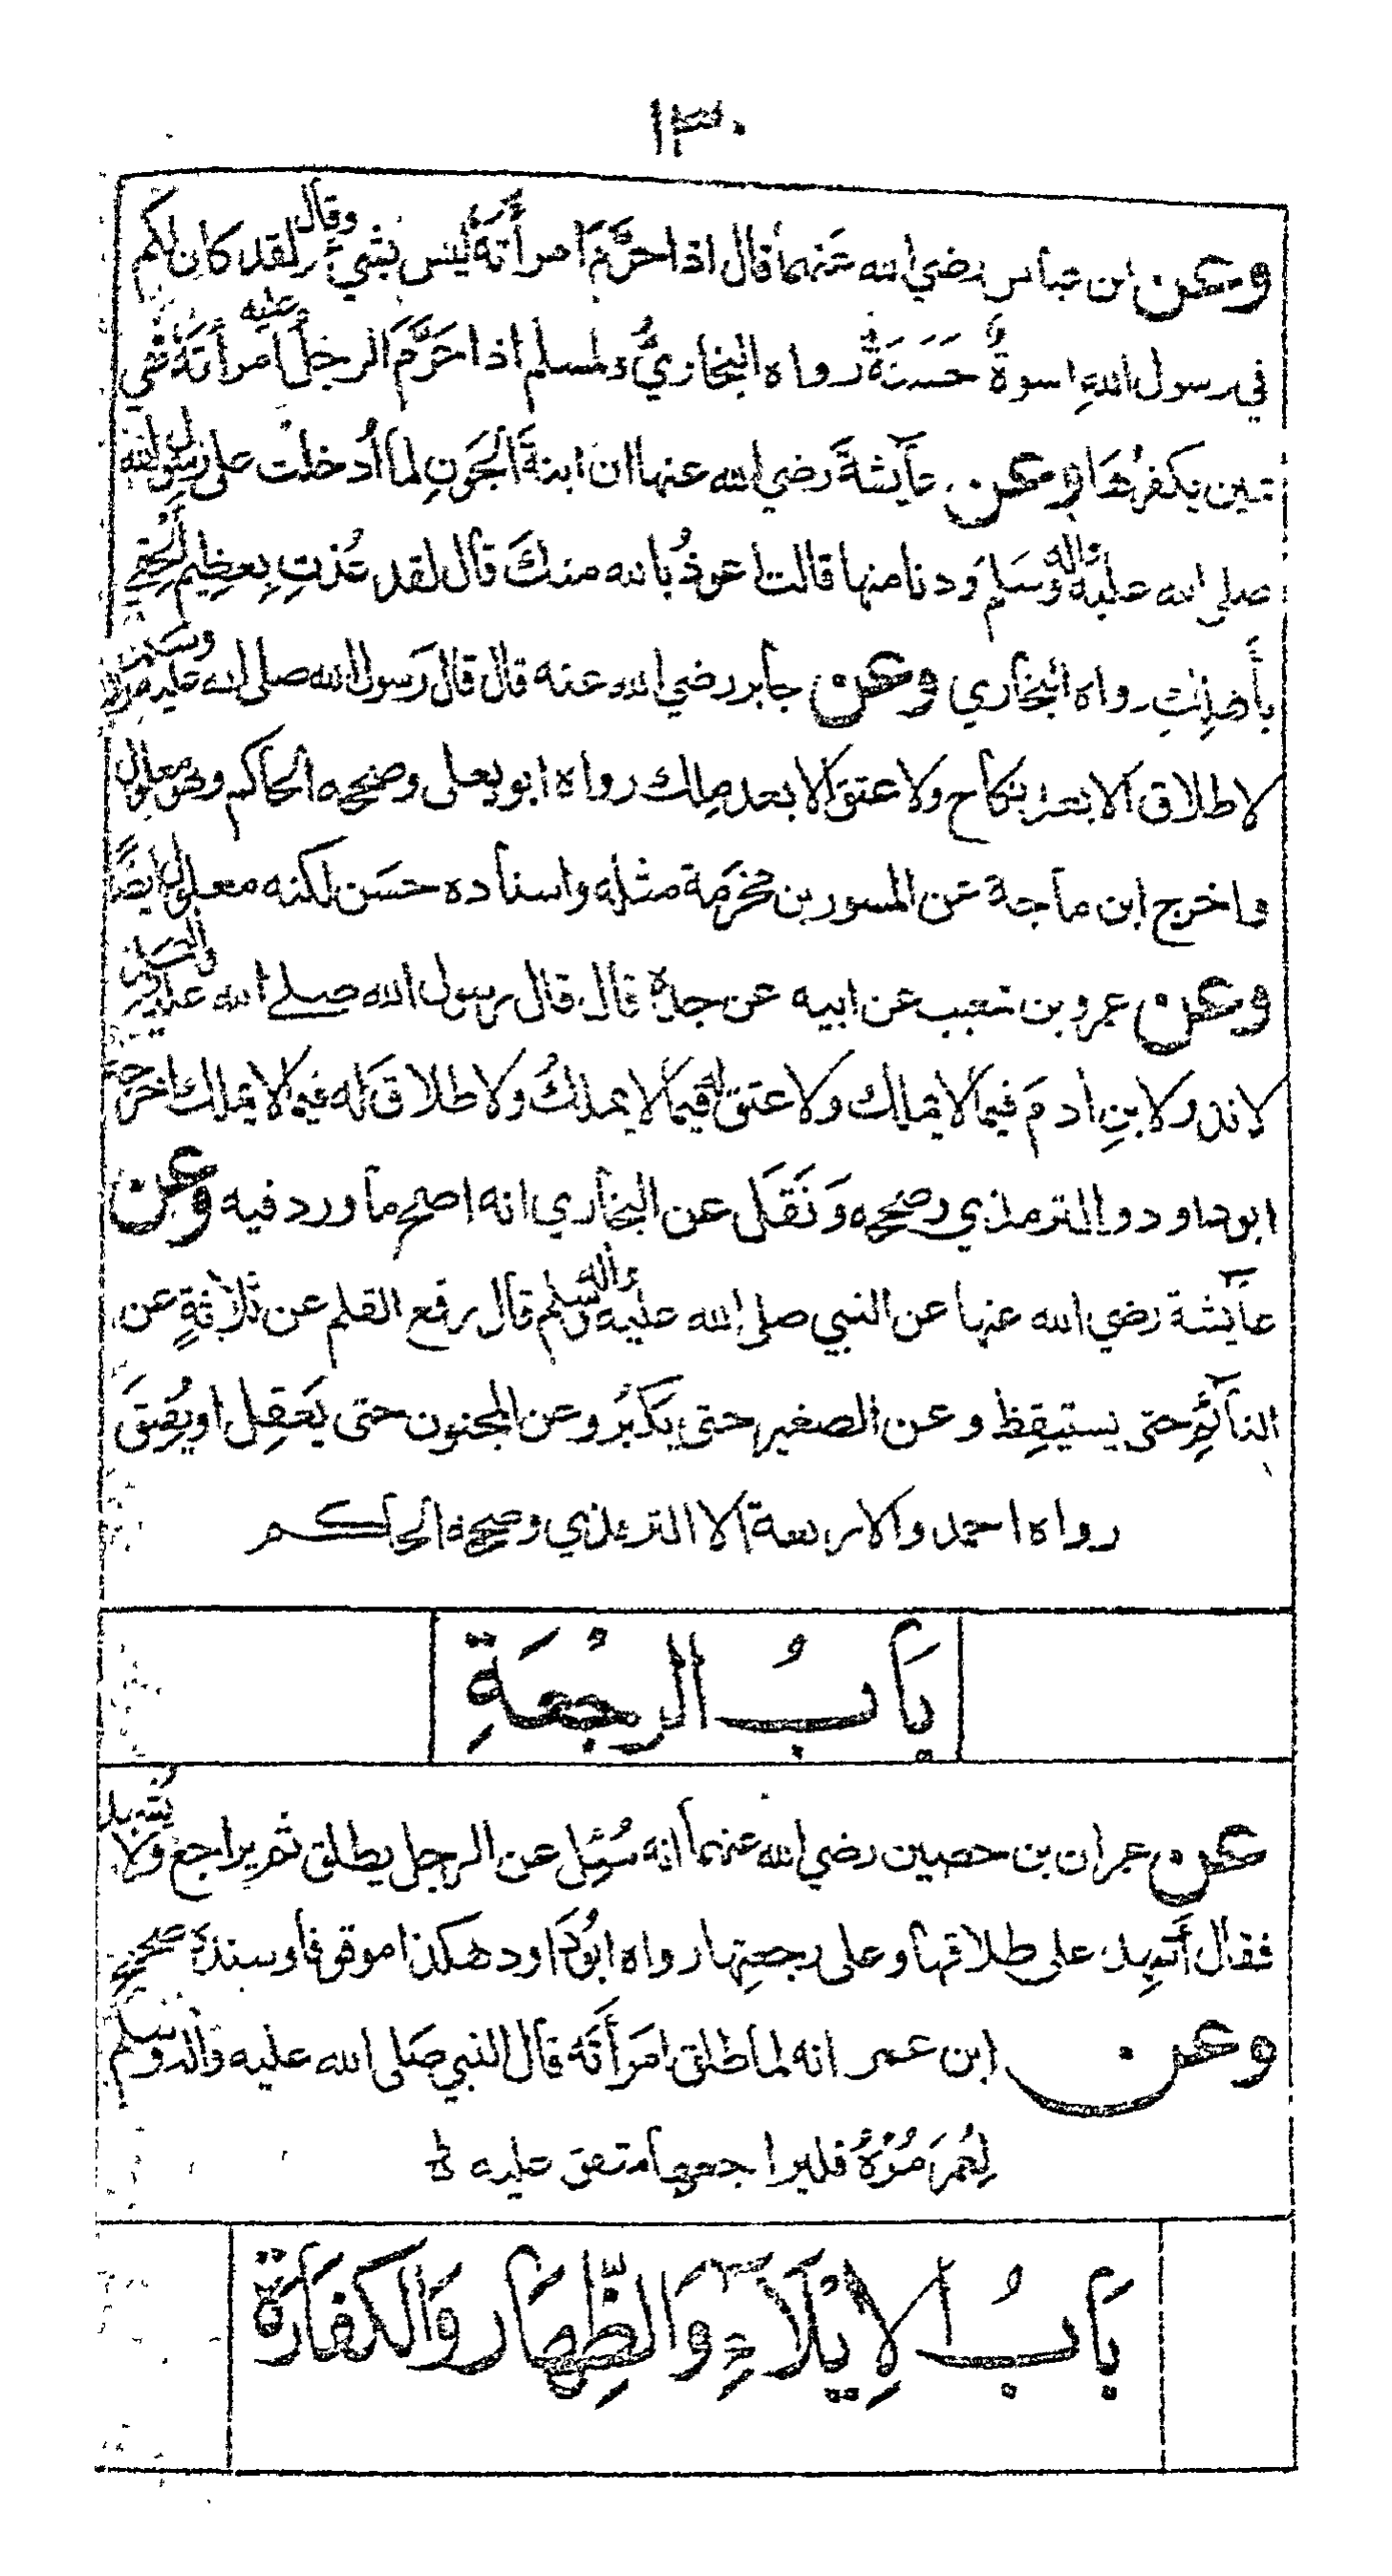 ١٣٠
وعن ابن عباس رضي الله عنهما قال اذا حرَّم امرأتهُ ليس بشيءٍ وقال لقد كان لكم
في رسول اللهِ اسوةٌ حَسَنَةٌ رواه البخاريُّ ولمسلم اذا حَرَّمَ الرجلُ عليه امرأتَهُ فهي
يمين يكفرُها وعن عآيشةَ رضي الله عنها ان ابنةَ الجَونِ لما اُدخلت على رسول الله
صلى الله عليه وآله وسَلم وَدنا منها قالت اعوذُ بالله منكَ قال لقد عُذتِ بِعظِيمٍ اِلحَقِي
بأَهلِكِ رواه البخاري وعن جابر رضي الله عنه قال قال رَسول الله صلى الله عليه وآله وسلم
لا طلاق الا بعد نكاح ولا عتق الا بعد مِلك رواه ابو يعلى وصححه الحاكم وهو معلول
واخرج ابن ماجة عن المسور بن مخرَمة مثله واسناده حسَن لكنه معلول ايضًا
وعن عمرو بن شعيب عن ابيه عن جده قال قال رسول الله صلے الله عليه وآله وسلم
لا نذر ولا بنِ ادمَ فيما لا يملك ولا عتق له فيما لا يملكُ ولا طلاقَ له فيما لا يملك اخرجه
ابو داود والترمذي وصححه وَنَقَلَ عن البخاري انه اصح ما ورد فيه وعن
عآيشة رضي الله عنها عن النبي صلى الله عليه وآله وسلم قال رفع القلم عن ثلاثةٍ عن
النآئمِ حتى يستيقِظ وعن الصغير حتى يَكبُرَ وعن المجنون حتى يَعقِل او يُفِيقَ
رواه احمد والاربعة الا الترمذي وصححه الحاكم
بَابُ الرجْعَةِ
عن عمران بن حصين رضي الله عنهما انه سُئِل عن الرجل يطلق ثم يراجع ولا يُشهِد
فقال أَشهِد على طلاقها وعلى رجعتِها رواه ابُو دَاود هكذا موقوفا وسندهُ صحيح
وعن ابن عمر انه لما طلق امَرأَتَه قال النبي صَلى الله عليه وآله وسلم
لِعُمَرَ مُرْهُ فليراجعها متفق عليه
بَابُ الاِيْلَآءِ وَالظِّهَارِ وَالكَفَارَةِ